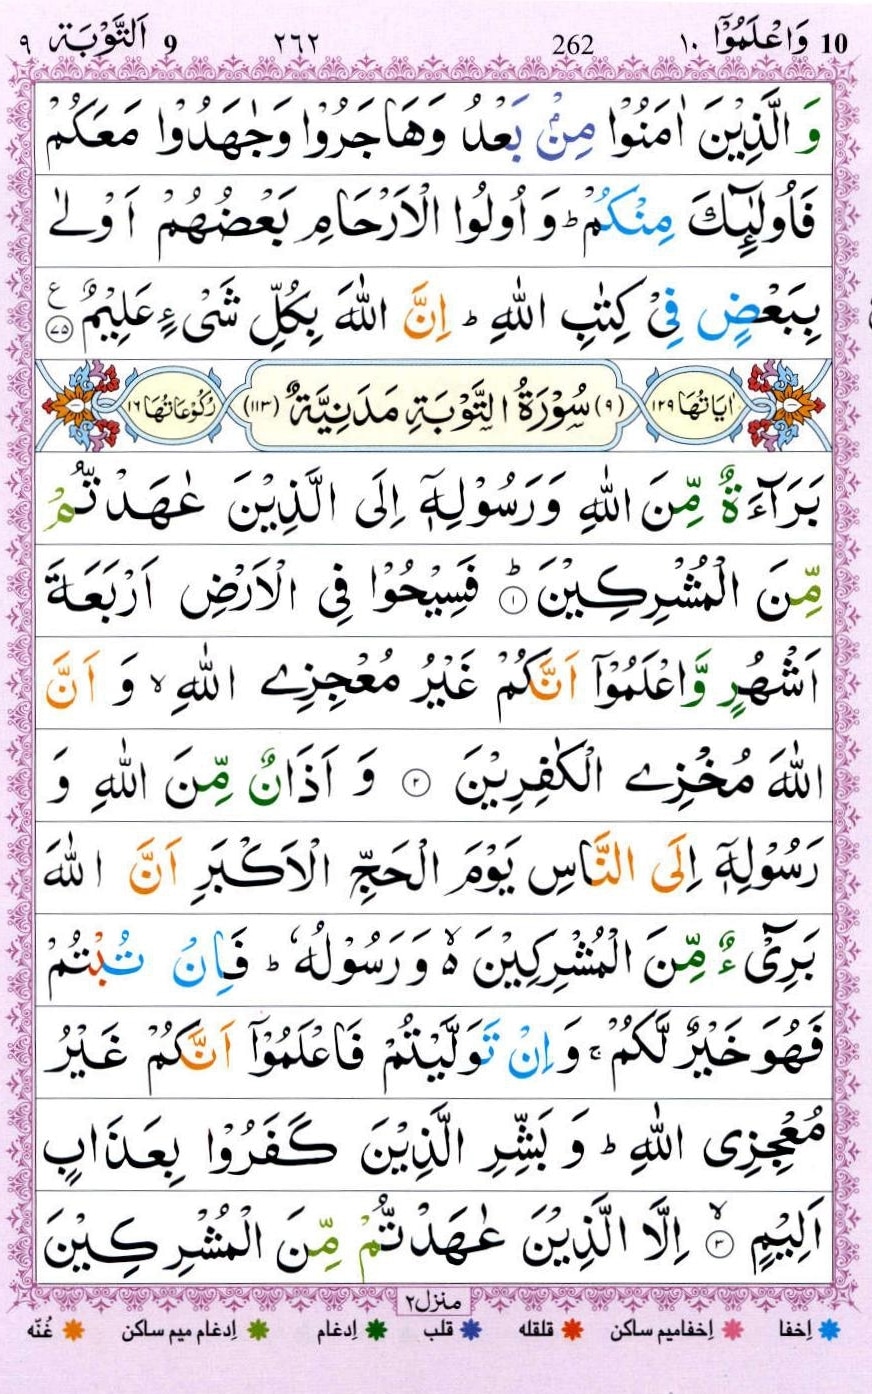 10 وَاعْلَمُوْۤا ١٠ 262 ٢٦٢ 9 اَلتَّوْبَة ٩
وَ الَّذِيْنَ اٰمَنُوْا مِنْۢ بَعْدُ وَهَاجَرُوْا وَجٰهَدُوْا مَعَكُمْ
فَاُولٰٓئِكَ مِنْكُمْ ؕ وَ اُولُوا الْاَرْحَامِ بَعْضُهُمْ اَوْلٰى
بِبَعْضٍ فِيْ كِتٰبِ اللّٰهِ ؕ اِنَّ اللّٰهَ بِكُلِّ شَيْءٍ عَلِيْمٌ ۧ ﴿٧٥﴾
اٰيَاتُهَا ١٢٩ (٩) سُوْرَةُ التَّوْبَةِ مَدَنِيَّةٌ (١١٣) رُكُوْعَاتُهَا ١٦
بَرَآءَةٌ مِّنَ اللّٰهِ وَرَسُوْلِهٖۤ اِلَى الَّذِيْنَ عٰهَدْتُّمْ
مِّنَ الْمُشْرِكِيْنَ ؕ ﴿١﴾ فَسِيْحُوْا فِي الْاَرْضِ اَرْبَعَةَ
اَشْهُرٍ وَّاعْلَمُوْۤا اَنَّكُمْ غَيْرُ مُعْجِزِي اللّٰهِ ۙ وَ اَنَّ
اللّٰهَ مُخْزِي الْكٰفِرِيْنَ ﴿٢﴾ وَ اَذَانٌ مِّنَ اللّٰهِ وَ
رَسُوْلِهٖۤ اِلَى النَّاسِ يَوْمَ الْحَجِّ الْاَكْبَرِ اَنَّ اللّٰهَ
بَرِيْٓءٌ مِّنَ الْمُشْرِكِيْنَ ۙ۬ وَ رَسُوْلُهٗ ؕ فَاِنْ تُبْتُمْ
فَهُوَ خَيْرٌ لَّكُمْ ۚ وَ اِنْ تَوَلَّيْتُمْ فَاعْلَمُوْۤا اَنَّكُمْ غَيْرُ
مُعْجِزِي اللّٰهِ ؕ وَ بَشِّرِ الَّذِيْنَ كَفَرُوْا بِعَذَابٍ
اَلِيْمٍ ۙ ﴿٣﴾ اِلَّا الَّذِيْنَ عٰهَدْتُّمْ مِّنَ الْمُشْرِكِيْنَ
منزل٢
اِخفا اِخفامیم ساکن قلقله قلب اِدغام اِدغام میم ساکن غُنّه